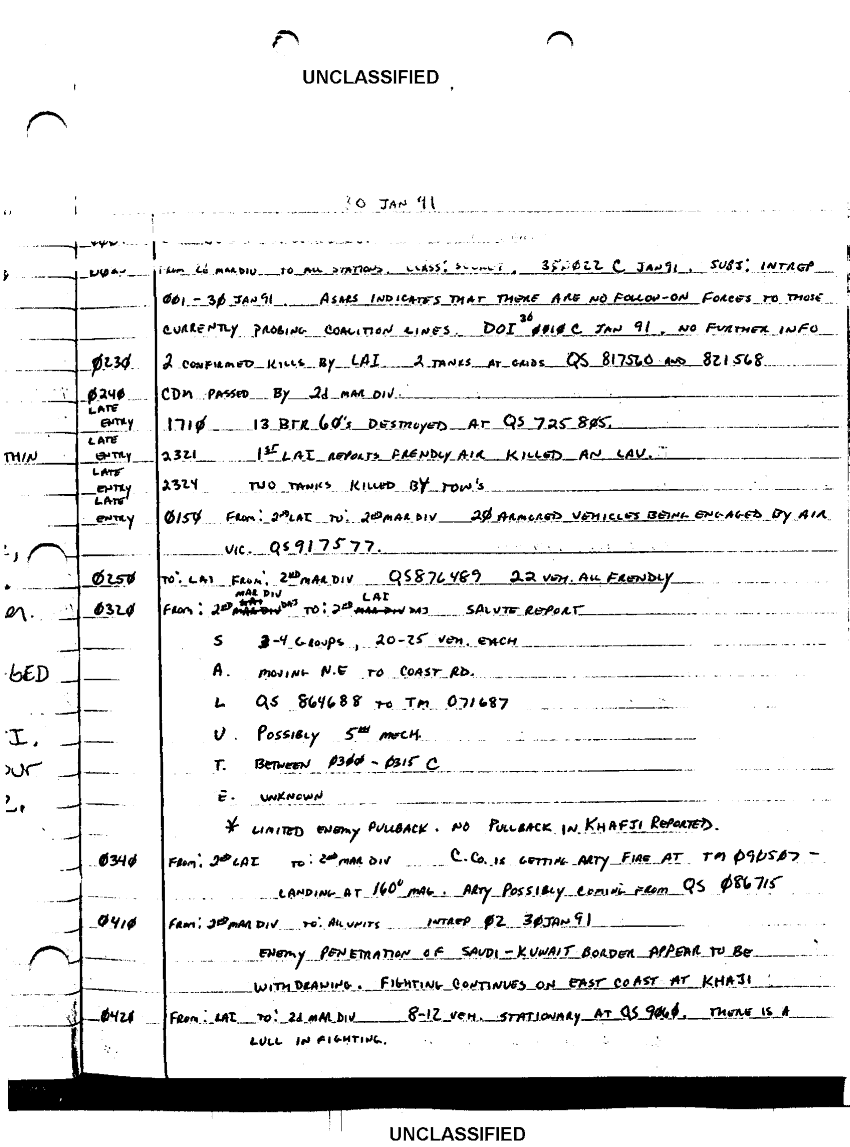 UNCLASSIFIED
30 JAN 91
FROM 2d MAR DIV TO ALL STATIONS. CLASS: 22 C JAN 91. SUBJ: INTREP
001-30 JAN 91. ASARS INDICATES THAT THERE ARE NO FOLLOW-ON FORCES TO THOSE
CURRENTLY PROBING COALITION LINES. DOI 30 0010 C JAN 91. NO FURTHER INFO
0230 2 CONFIRMED KILLS BY LAI 2 TANKS AT GRIDS QS 817560 AND 821568
0240 CDM PASSED BY 2d MAR DIV.
LATE ENTRY 1710 13 BTR 60's DESTROYED AT QS 725805.
THIN LATE ENTRY 2321 1ST LAI REPORTS FRENDLY AIR KILLED AN LAV.
LATE ENTRY 2324 TWO TANKS KILLED BY TOW's
LATE ENTRY 0150 FROM: 2nd LAI TO: 2nd MAR DIV 20 ARMORED VEHICLES BEING ENGAGED BY AIR
VIC. QS917577.
0250 TO: LAI FROM: 2ND MAR DIV QS876489 22 VEH. ALL FRENDLY
er. 0320 FROM: 2ND MAR DIV TO: 2nd LAI SALUTE REPORT
S 3-4 GROUPS, 20-25 VEH. EACH
GED A. MOVING N.E TO COAST RD.
L QS 864688 TO TM 071687
I. U. POSSIBLY 5TH MECH.
our T. BETWEEN 0300-0315 C
E. UNKNOWN
* LIMITED ENEMY PULLBACK. NO PULLBACK IN KHAFJI REPORTED.
0340 FROM: 2nd LAI TO: 2nd MAR DIV C.CO. IS GETTING ARTY FIRE AT TM 090507 -
LANDING AT 160° MAG. ARTY POSSIBLY COMING FROM QS 086715
0410 FROM: 2nd MAR DIV TO: ALL UNITS INTREP 02 30JAN91
ENEMY PENETRATION OF SAUDI-KUWAIT BORDER APPEAR TO BE
WITHDRAWING. FIGHTING CONTINUES ON EAST COAST AT KHAJI
0420 FROM: LAI TO: 2d MAR DIV 8-12 VEH. STATIONARY AT QS 9060. THERE IS A
LULL IN FIGHTING.
UNCLASSIFIED